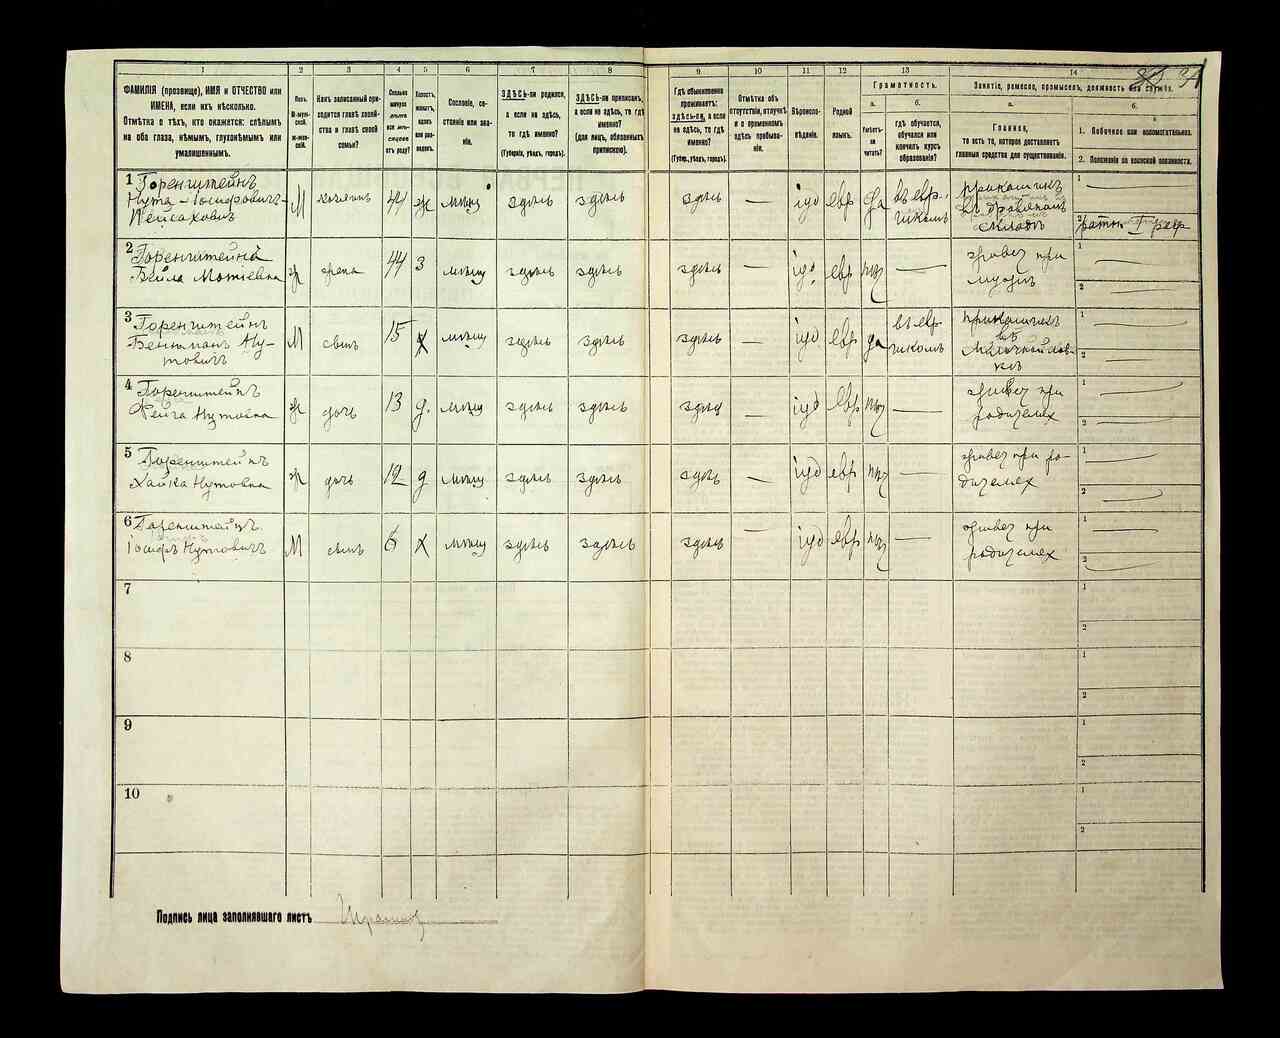 1 2 3 4 5 6 7 8 9 10 11 12 13 14
34
ФАМИЛІЯ (прозвище), ИМЯ и ОТЧЕСТВО или
ИМЕНА, если ихъ нѣсколько.
Отмѣтка о тѣхъ, кто окажется: слѣпымъ
на оба глаза, нѣмымъ, глухонѣмымъ или
умалишеннымъ.
Полъ.
М-мужской.
Ж-женскій.
Какъ записанный приходится
главѣ хозяйства и главѣ своей
семьи?
Сколько
минуло
лѣтъ
или мѣсяцевъ
отъ роду?
Холостъ,
женатъ,
вдовъ
или разведенъ.
Сословіе, состояніе
или званіе.
ЗДѢСЬ-ли родился,
а если не здѣсь,
то гдѣ именно?
(Губернія, уѣздъ, городъ).
ЗДѢСЬ-ли приписанъ,
а если не здѣсь, то гдѣ
именно?
(для лицъ, обязанныхъ
припискою).
Гдѣ обыкновенно
проживаетъ:
здѣсь-ли, а если
не здѣсь, то гдѣ
именно?
(Губер., уѣздъ, городъ).
Отмѣтка объ
отсутствіи, отлучкѣ
и о временномъ
здѣсь пребываніи.
Вѣроисповѣданіе.
Родной
языкъ.
Грамотность.
а.
Умѣетъ-ли
читать?
б.
гдѣ обучается,
обучался или
кончилъ курсъ
образованія?
Занятіе, ремесло, промыселъ, должность или служба.
а.
Главная,
то есть то, которое доставляетъ
главныя средства для существованія.
б.
1. Побочное или вспомогательное.
2. Положеніе по воинской повинности.
1 Горенштейнъ
Нута-Іосифовичъ-
Пейсаховичъ
М хозяинъ 44 ж мѣщ здѣсь здѣсь здѣсь — іуд евр да въ евр. школѣ
приказчикъ
въ дровяномъ
складѣ
1
2 ратн I разр
2 Горенштейнъ
Бейла Мотіевна
ж жена 44 з мѣщ здѣсь здѣсь здѣсь — іуд. евр нѣт —
живет при
мужѣ
1
2
3 Горенштейнъ
Беньманъ Нутовичъ
М сынъ 15 х мѣщ здѣсь здѣсь здѣсь — іуд евр да въ евр школѣ
приказчикъ
въ
1
2
4 Горенштейнъ
Фейга Нутовна
ж дочь 13 д. мѣщ здѣсь здѣсь здѣсь — іуд евр нѣт —
живет при
родителях
1
2
5 Горенштейнъ
Хайка Нутовна
ж дочь 12 д мѣщ здѣсь здѣсь здѣсь — іуд евр нѣт —
живет при ро-
дителях
1
2
6 Горенштейнъ
Іосифъ Нутовичъ
М сынъ 6 х мѣщ здѣсь здѣсь здѣсь — іуд евр нѣт —
живет при
родителях
1
2
7
1
2
8
1
2
9
1
2
10
1
2
Подпись лица заполнявшаго листъ